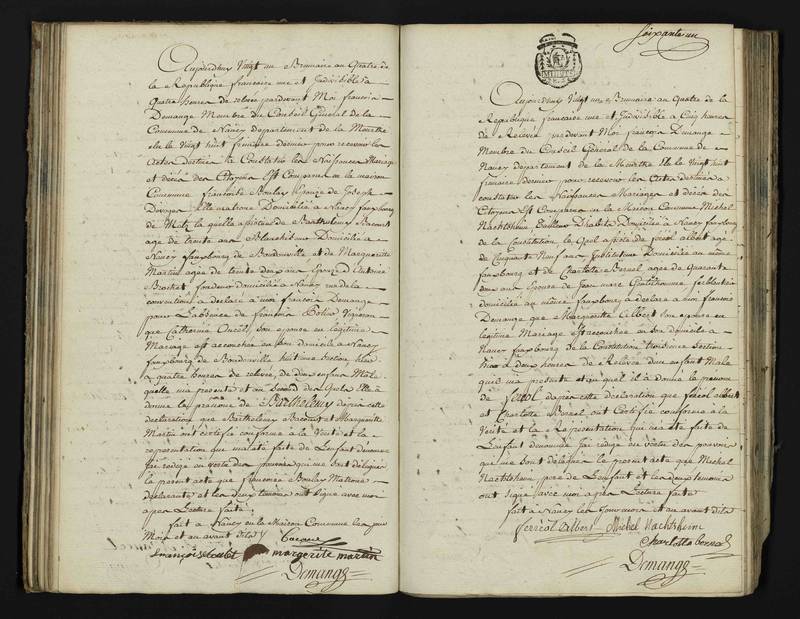 Aujourdhuy Vingt un Brumaire an Quatre de
la Republique francaise une et Indivisible a
Quatre heures de relevée pardevant Moi francois
Demange Membre du Conseil Général de la
Commune de Nancy departement de la Meurthe
elu le Vingt huit frimaire dernier pour recevoir les
Actes destinés à Constater les Naissances Mariages
et décès des Citoyens Est Comparue en la maison
Commune francoise Boulay Epouse de Joseph
Matrone Domiciliée a Nancy fauxbourg
de Metz la quelle assistée de Barthelemy Bacourt
agé de trente ans Domicilié a
Nancy fauxbourg de Boudonville et de Marguerite
Martin agée de trente deux ans Epouse d'Antoine
Brocket fondeur domiciliée a Nancy rue de la
convention a déclaré a moi francois Demange
pour Labsence de francois Vigneron
que Catherine son epouse en légitime
Mariage est accouchée en son domicile a Nancy
fauxbourg de Boudonville huitieme Section hier
a quatre heures de relevée, de deux enfans Male
quelle ma presenté et au second des quels Elle a
donné le prénom de Barthelemy dapres cette
declaration que Barthelemy Bacourt et Marguerite
Martin ont certifié conforme à la Verité et la
representation qui ma été faite de Lenfant denommé
jai redigé en vertu des pouvoirs qui me sont délégués
le present acte que francoise Boulay Matrone
declarante et les deux temoins ont Signé avec moi
apres Lecture faite
fait a Nancy en la Maison Commune les jour
Mois et an avant dits
Bacourt
margerite martin
Demange
Soixante un
Aujourdhuy Vingt un Brumaire an Quatre de la
République francaise une et Indivisible a Cinq heures
de Relevée pardevant Moi francois Demange
Membre du Conseil Général de la Commune de
Nancy departement de la Meurthe Elu le Vingt huit
frimaire dernier pour recevoir les Actes destinés a
constater les Naissances Mariages et décès des
Citoyens Est Comparu en la Maison Commune Michel
Nachtsheim Tailleur D'habits Domicilié a Nancy fauxbourg
de la Constitution, le Quel assisté de feréol albert agé
de Cinquante Neuf ans Instituteur Domicilié au même
fauxbourg et de Charlotte Bersel agée de Quarante
deux ans Epouse de Jean marc ferblantier
domiciliée au même fauxbourg a déclaré a moi francois
Demange que Marguerite Celbert son epouse en
legitime Mariage est accouchée en son domicile a
Nancy fauxbourg de la Constitution troisieme Section
a deux heures de Relevée d'un enfant Male
quil ma presenté et au quel il a donné le prenom
de feréol dapres cette déclaration que feréol albert
et Charlotte Bersel ont Certifié conforme a la
Verité et la Réprésentation qui ma été faite de
Lenfant denommé jai redigé en vertu des pouvoirs
qui me sont délégués le present acte que Michel
Nachtsheim pere de Lenfant et les deux temoins
ont signé avec moi apres Lecture faite
fait a Nancy les jour mois et an avant dits
ferréol Albert Michel Nachtsheim
Charlotte bersel
Demange